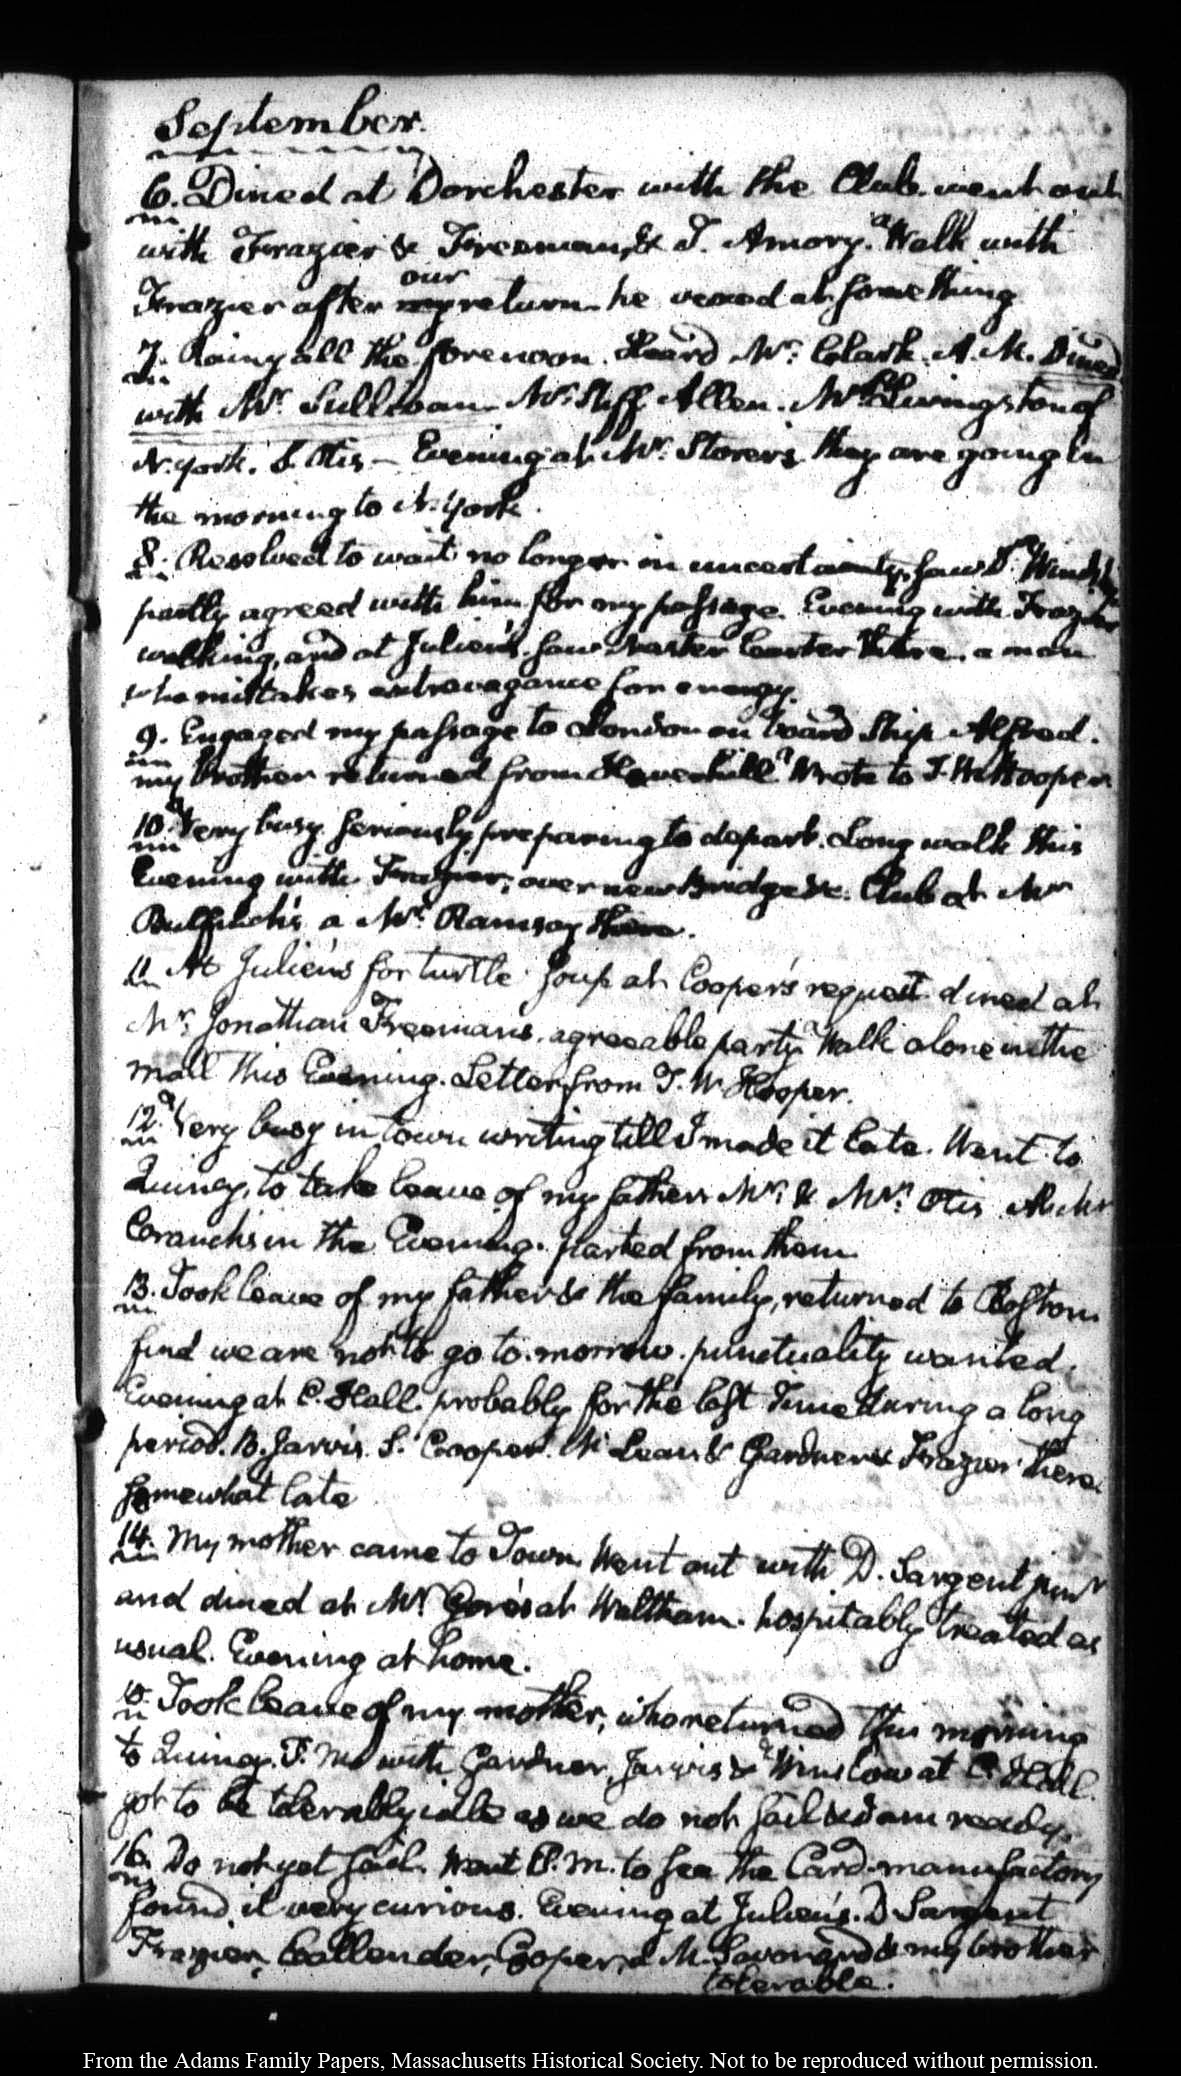 September.
6. Dined at Dorchester with the Club. went out
with Frazier & Freeman, & J. Amory. Walk with
our
Frazier after my return. he vexed at something
7. Rainy all the forenoon. Heard Mr. Clark. A.M. Dined
with Mr. Sullivan. Mr. Allen. Mr. Livingston of
N. York. S. Otis — Evening at Mr. Storer's they are going in
the morning to N. York.
8. Resolved to wait no longer in uncertainty. saw D.
partly agreed with him for my passage. Evening with Frazier
walking, and at Julien's. saw Carter there. a man
who mistakes extravagance for energy.
9. Engaged my passage to London on board Ship Alfred.
my brother returned from Haverhill. Wrote to J. W. Hooper
10. Very busy. seriously preparing to depart. Long walk this
Evening with Frazier, over new Bridge &c. Club at Mr
Bulfinch's a Mr. Ramsay there.
11. At Julien's for turtle soup at Cooper's request. dined at
Mr. Jonathan Freeman's. agreeable party. Walk alone in the
mall this Evening. Letter from J. W. Hooper.
12. Very busy in town writing till I made it late. Went to
Quincy, to take leave of my father. Mr. & Mrs. Otis At Mr
Cranch's in the Evening. parted from them
13. Took leave of my father & the family, returned to Boston
find we are not to go to-morrow. punctuality wanted.
Evening at C. Hall. probably for the last Time during a long
period. B. Jarvis. S. Cooper. & Gardner & Frazier there.
somewhat late
14. My mother came to Town. Went out with D. Sargent junr
and dined at Mr. Gore's at Waltham. hospitably treated as
usual. Evening at home.
15. Took leave of my mother, who returned this morning
to Quincy. with Gardner, Jarvis & Winslow at C. Hall.
got to be tolerably idle as we do not sail & I am ready.
16. Do not yet sail. Went P.M. to see the Card-manufactory
found it very curious. Evening at Julien's. D Sargent
Frazier, Callender, Cooper, a M. & my brother
tolerable.
From the Adams Family Papers, Massachusetts Historical Society. Not to be reproduced without permission.